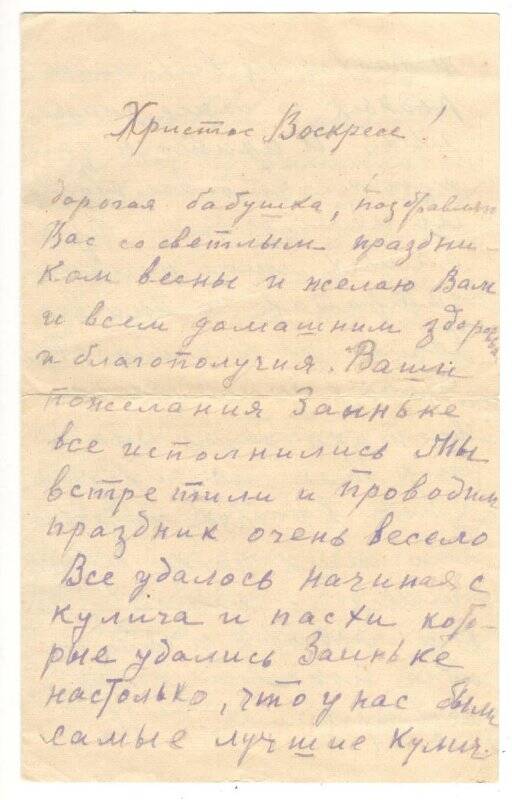 Христос Воскресе!
дорогая бабушка, поздравляю
Вас со светлым праздни-
ком весны и желаю Вам
и всем домашним здоровья
и благополучия. Ваши
пожелания Заиньке
все исполнились Мы
встретили и проводим
праздник очень весело
Все удалось начиная с
кулича и пасхи кото-
рые удались Заиньке
настолько, что у нас были
самые лучшие кулич.